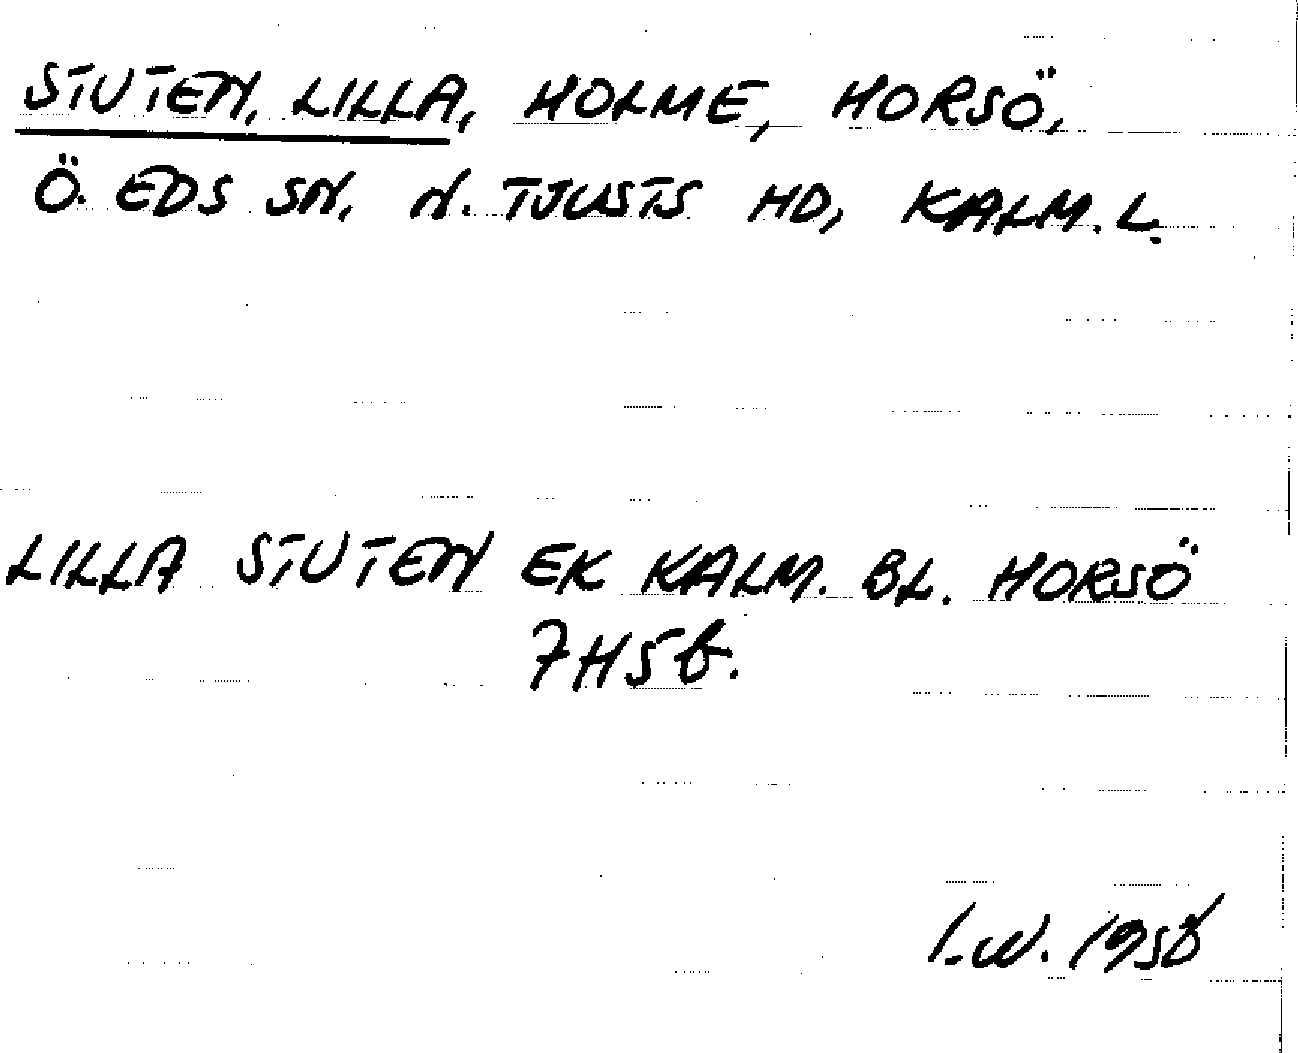 STUTEN, LILLA, HOLME, HORSÖ,
Ö. EDS SN, N. TJUSTS HD, KALM. L.
LILLA STUTEN EK KALM. BL. HORSÖ
7H5b.
I.W. 1958